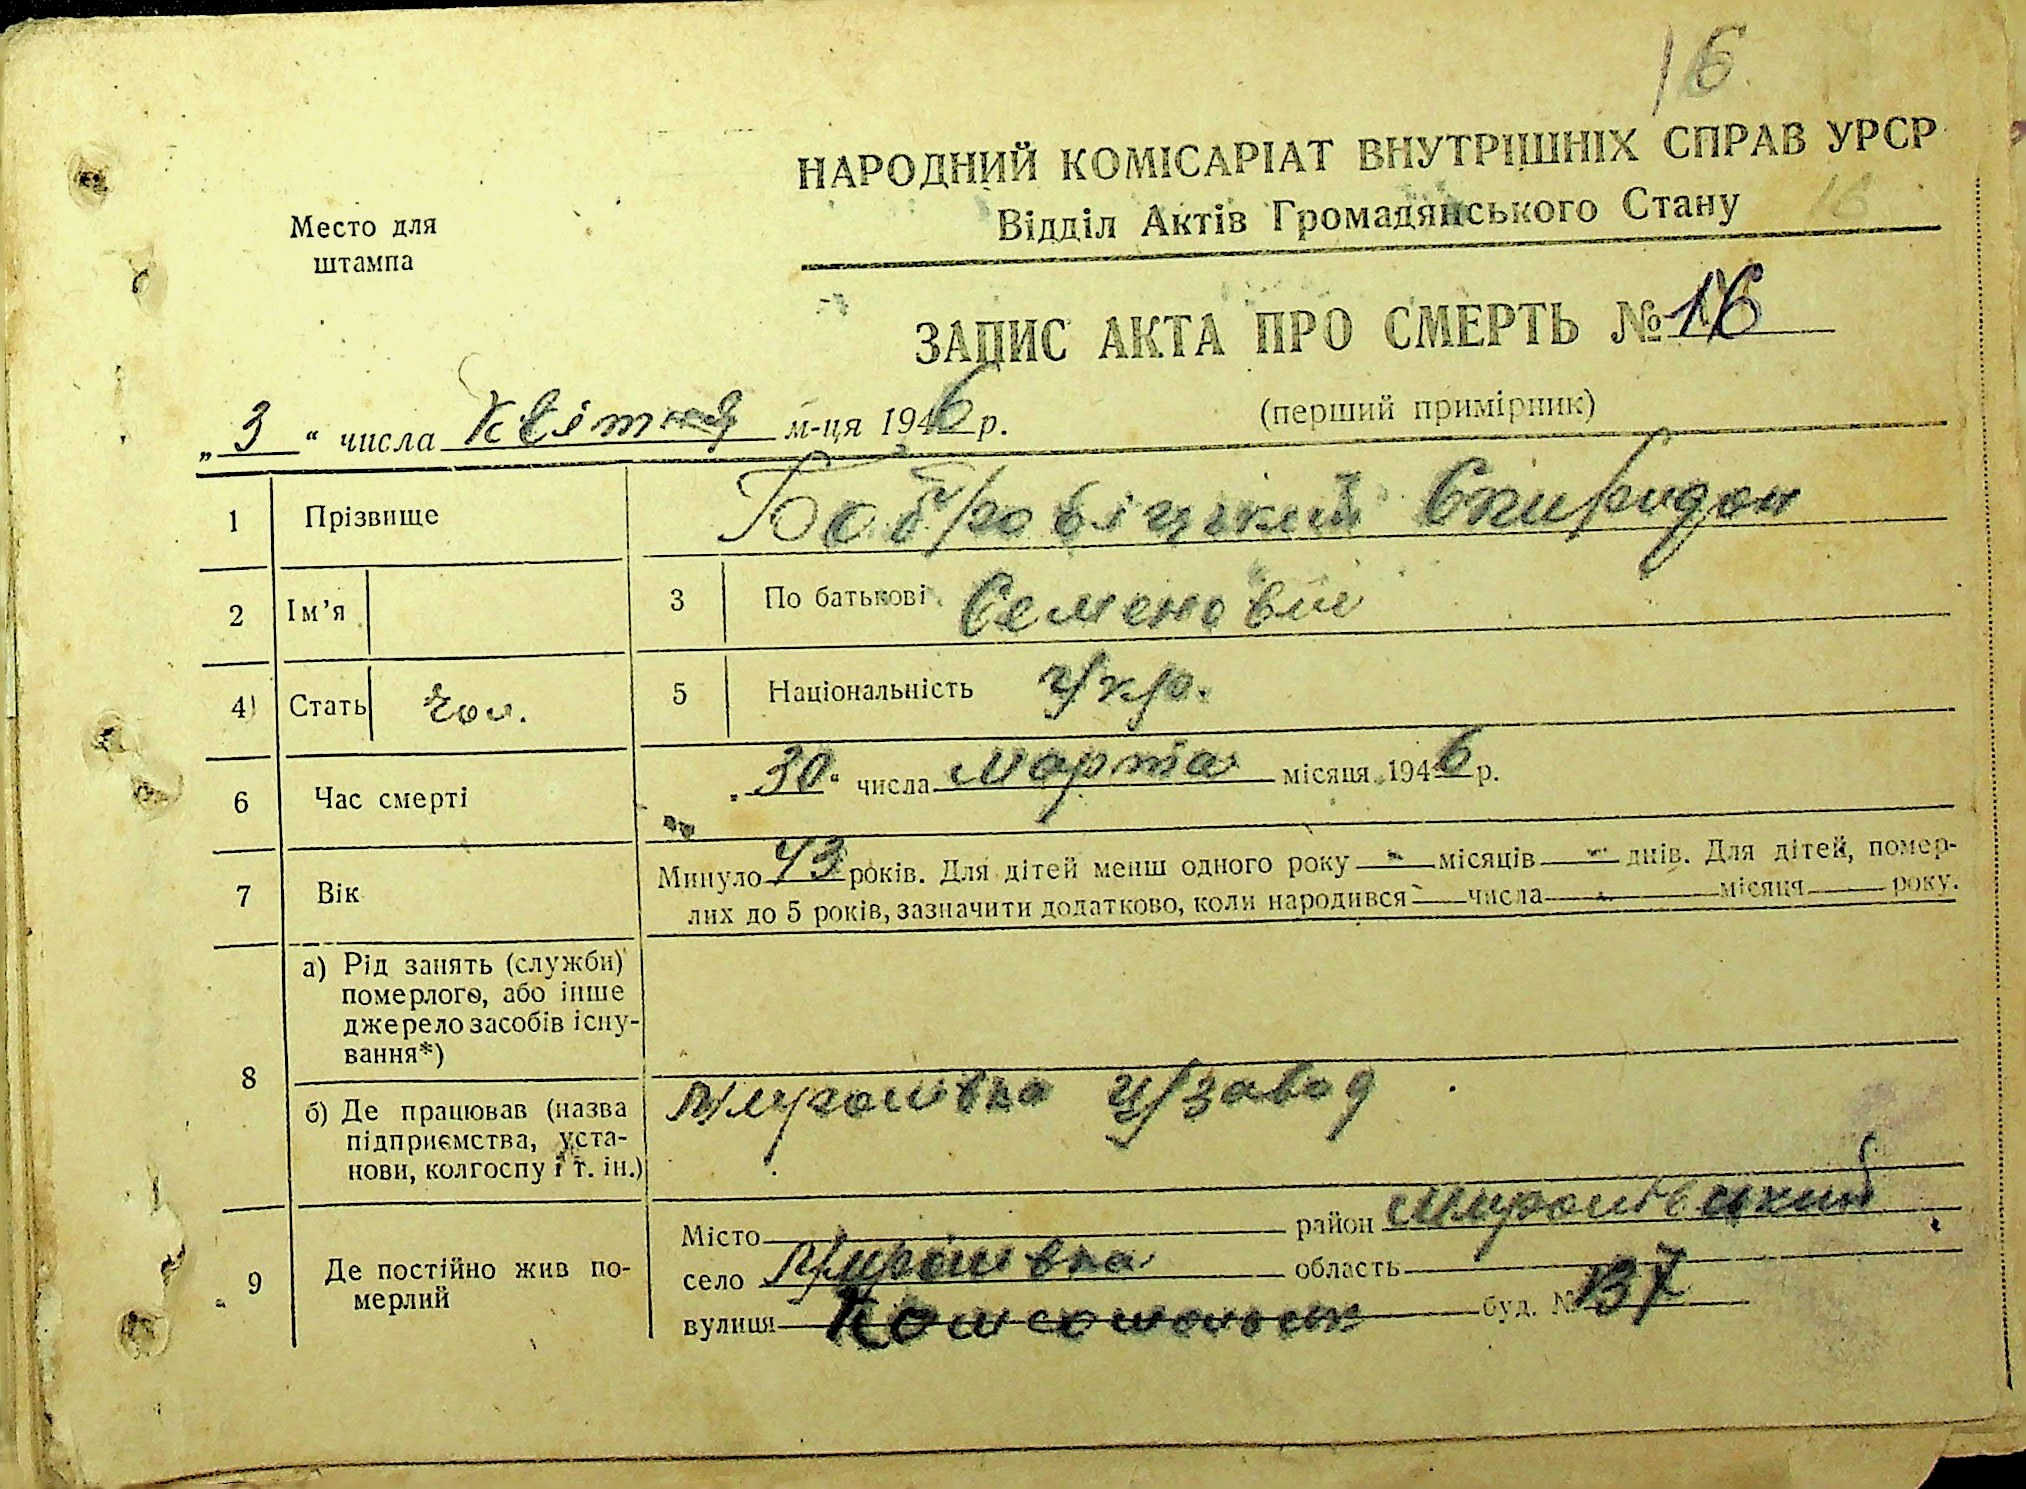 16
НАРОДНИЙ КОМІСАРІАТ ВНУТРІШНІХ СПРАВ УРСР
Відділ Актів Громадянського Стану
16
Место для
штампа
ЗАПИС АКТА ПРО СМЕРТЬ № 16
(перший примірник)
„ 3 “ числа квітня м-ця 1946 р.
1 Прізвище Бобровіцький Спиридон
2 Ім’я 3 По батькові Семенов
4 Стать чол. 5 Національність Укр.
6 Час смерті „30“ числа марта місяця 1946 р.
7 Вік Минуло 43 років. Для дітей менш одного року - місяців - днів. Для дітей, помер-
лих до 5 років, зазначити додатково, коли народився - числа - місяця року.
8 а) Рід занять (служби)
померлого, або інше
джерело засобів існу-
вання*)
б) Де працював (назва
підприємства, уста-
нови, колгоспу і т. ін.)
ц/завод
9 Де постійно жив по-
мерлий
Місто район
село область
вулиця Комсомольськ буд. № 137